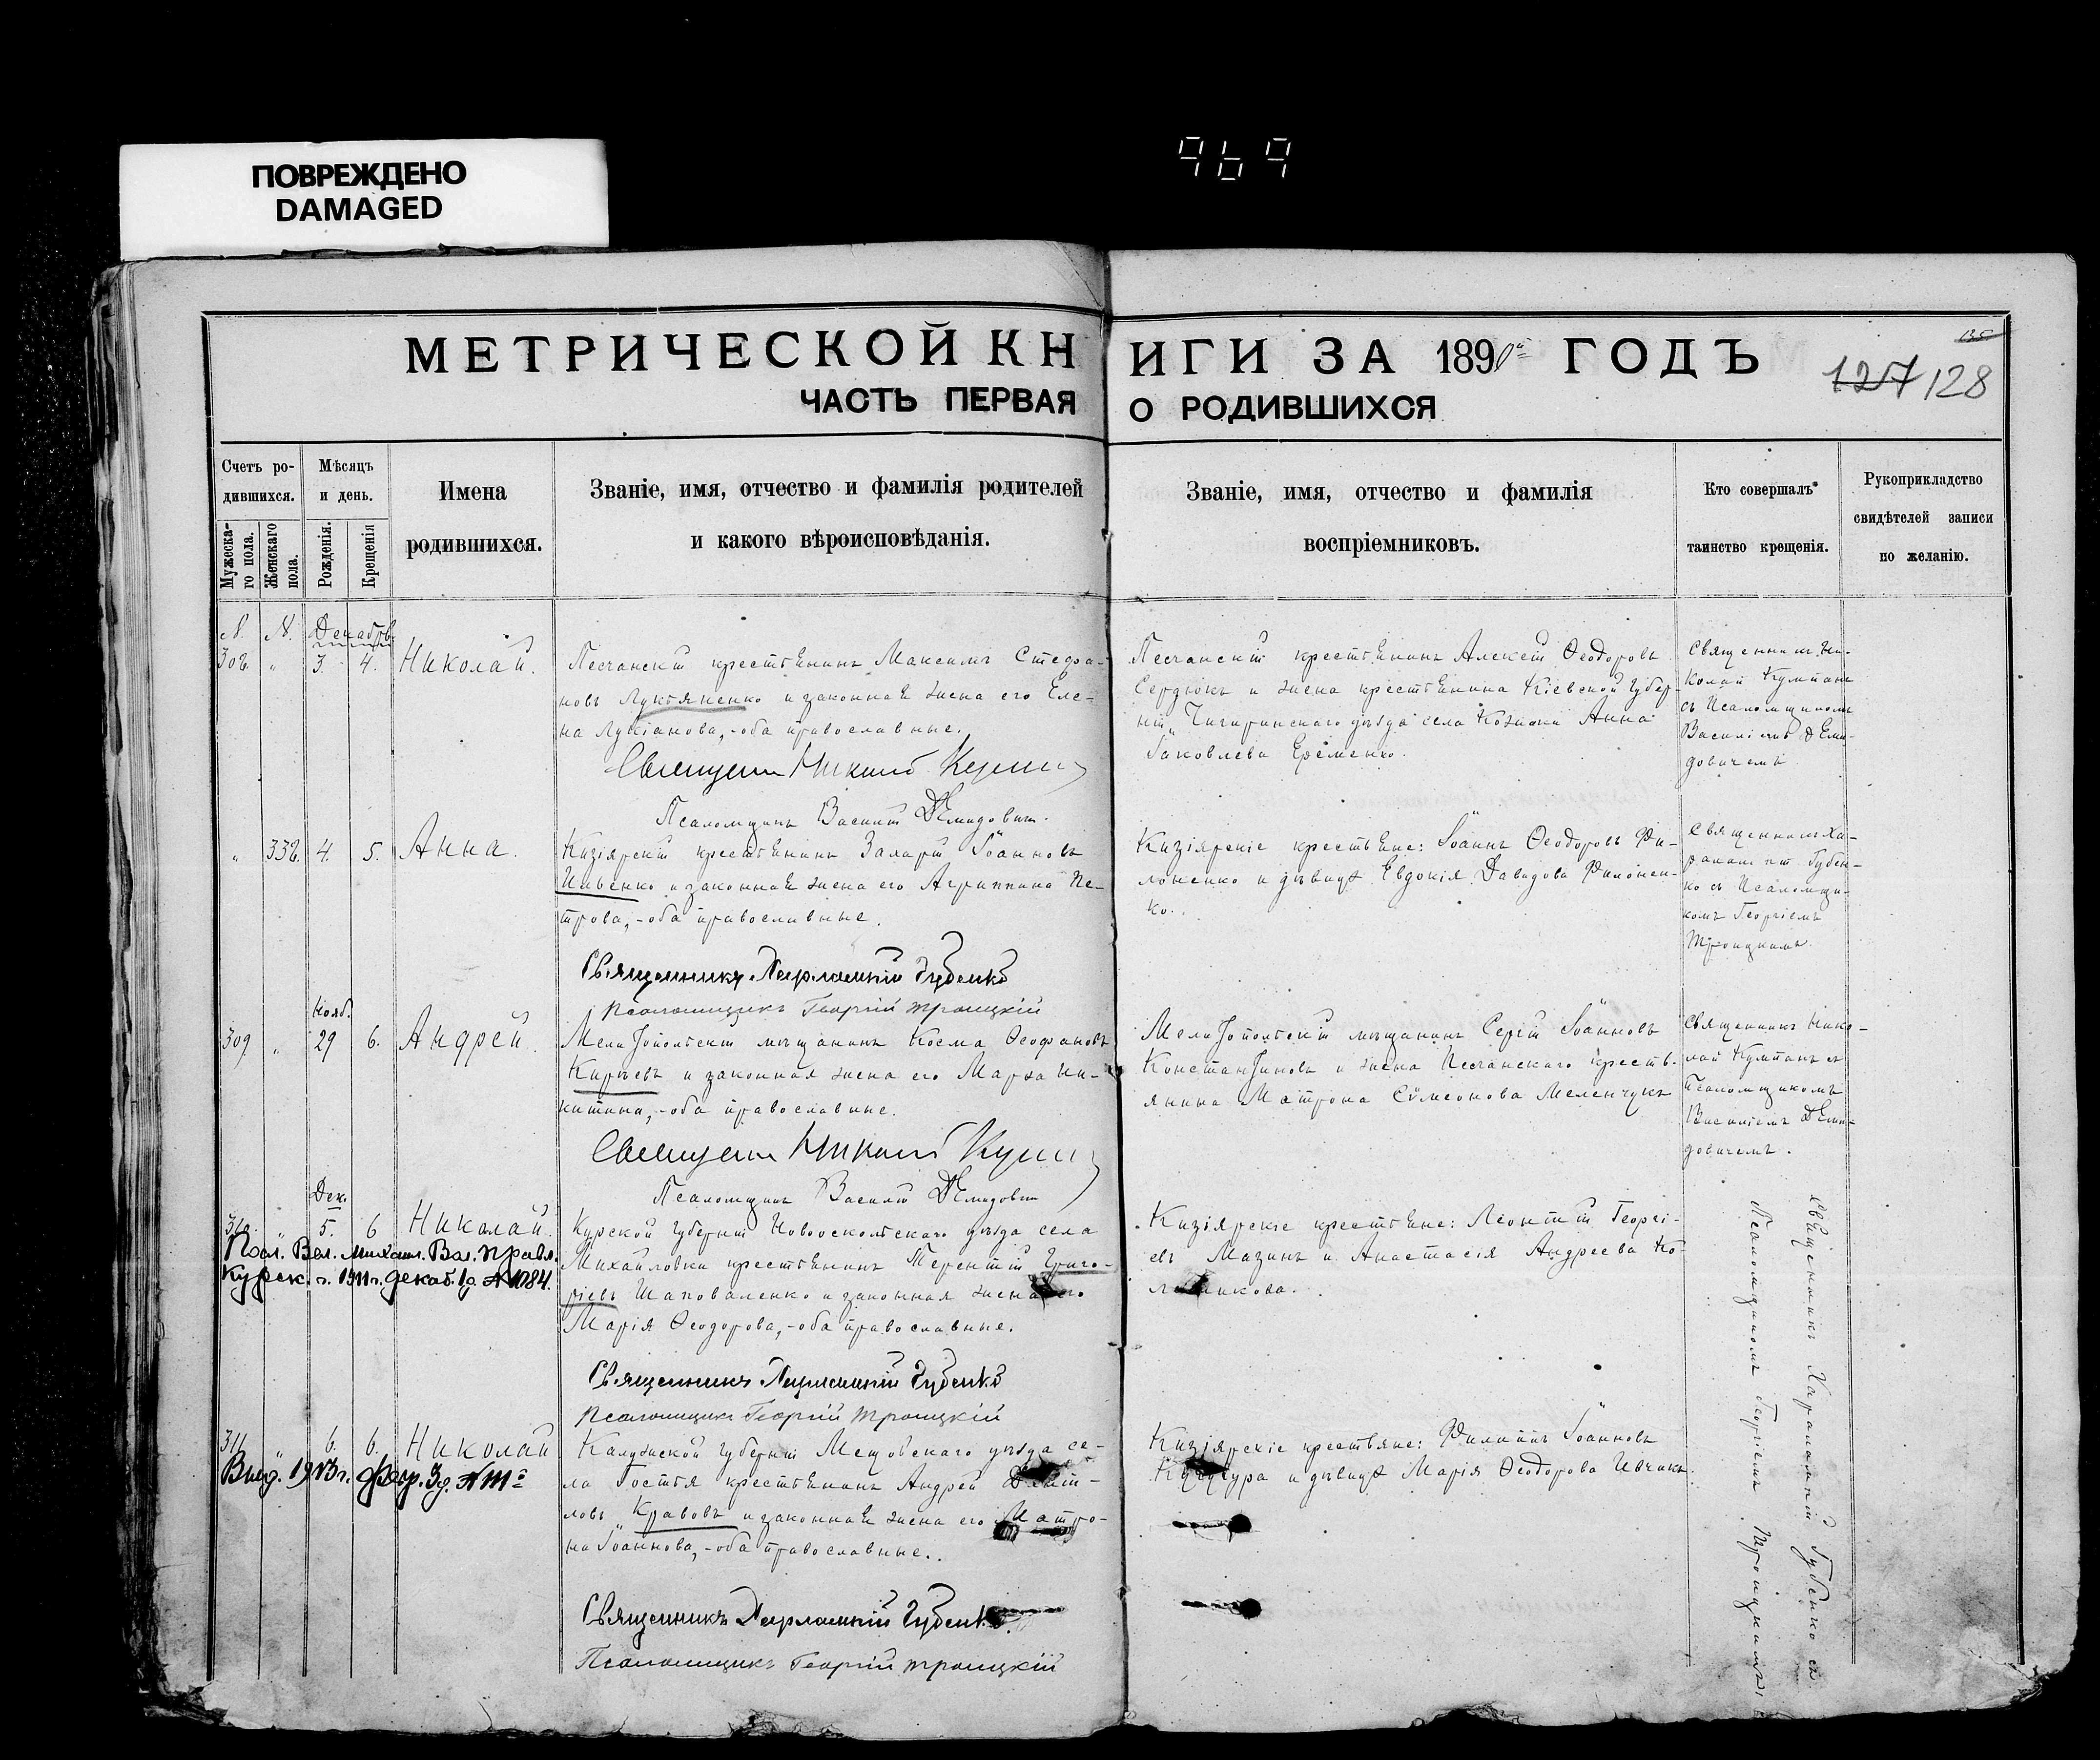 ПОВРЕЖДЕНО
DAMAGED
969
МЕТРИЧЕСКОЙ КНИГИ ЗА 1890й ГОДЪ
135
127 128
ЧАСТЬ ПЕРВАЯ О РОДИВШИХСЯ
Счетъ родившихся.
Мужескаго пола.
Женскаго пола.
Мѣсяцъ и день.
Рожденія.
Крещенія
Имена родившихся.
Званіе, имя, отчество и фамилія родителей
и какого вѣроисповѣданія.
Званіе, имя, отчество и фамилія
воспріемниковъ.
Кто совершалъ
таинство крещенія.
Рукоприкладство
свидѣтелей записи
по желанію.
№. №. Декабрь
308. " 3. 4. Николай.
Песчанскій крестьянинъ Максимъ Стефа-
новъ Лукьяненко и законная жена его Еле-
на Лукіанова, - оба православные.
Священникъ Николай
Псаломщикъ Василій Демидовичъ.
Песчанскій крестьянинъ Алексій Ѳеодоровъ
Сердюкъ и жена крестьянина Кіевской губер-
ніи Чигиринскаго уѣзда села Анна
Іаковлева Еременко.
Священникъ Ни-
колай Кумпанъ
съ Псаломщикомъ
Василіемъ Деми-
довичемъ
" 338. 4. 5. Анна.
Кизіярскій крестьянинъ Захарій Іоанновъ
Ивченко и законная жена его Агриппина Пе-
трова, - оба православные.
Священникъ Харлампій Губенко
Псаломщикъ Георгій Троицкій
Кизіярскіе крестьяне: Іоаннъ Ѳеодоровъ Фи-
лоненко и дѣвица Евдокія Давидова Филонен-
ко.
Священникъ Ха-
рлампій Губен-
ко съ Псаломщи-
комъ Георгіемъ
Троицкимъ.
Нояб.
309 " 29 6. Андрей.
Мелитопольскій мѣщанинъ Косма Ѳеофановъ
Кирѣевъ и законная жена его Марѳа Ни-
китина, - оба православные.
Священникъ Николай
Псаломщикъ Василій Демидовичъ
Мелитопольскій мѣщанинъ Сергій Іоанновъ
Константиновъ и жена Песчанскаго кресть-
янина Матрона Сѵмеонова Меленчукъ
Священникъ Нико-
лай Кумпанъ съ
Псаломщикомъ
Василіемъ Деми-
довичемъ.
Дек.
310. " 5. 6 Николай.
Посл. Вол. Михайл. Вол. Правл.
Курск. г. 1911 г. декаб. 1 д. №1084.
Курской губерніи Новооскольскаго уѣзда села
Михайловки крестьянинъ Терентій Григо-
рьевъ Шаповаленко и законная жена его
Марія Ѳеодорова, - оба православные.
Священникъ Харлампій Губенко
Псаломщикъ Георгій Троицкій
Кизіярскіе крестьяне: Леонтій Георгі-
евъ Мазинъ и Анастасія Андреева Ко-
Священникъ Харлампій Губенко съ
Псаломщикомъ Георгіемъ Троицкимъ
311 " 6. 6. Николай
Выд. 1913 г. февр. 3 д.
Калужской губерніи Мещовскаго уѣзда се-
ла Гостья крестьянинъ Андрей Даніи-
ловъ Кравовъ и законная жена его Матро-
на Іоаннова, - оба православные.
Священникъ Харлампій Губенко.
Псаломщикъ Георгій Троицкій
Кизіярскіе крестьяне: Филиппъ Іоанновъ
и дѣвица Марія Ѳеодорова Ивчикъ.